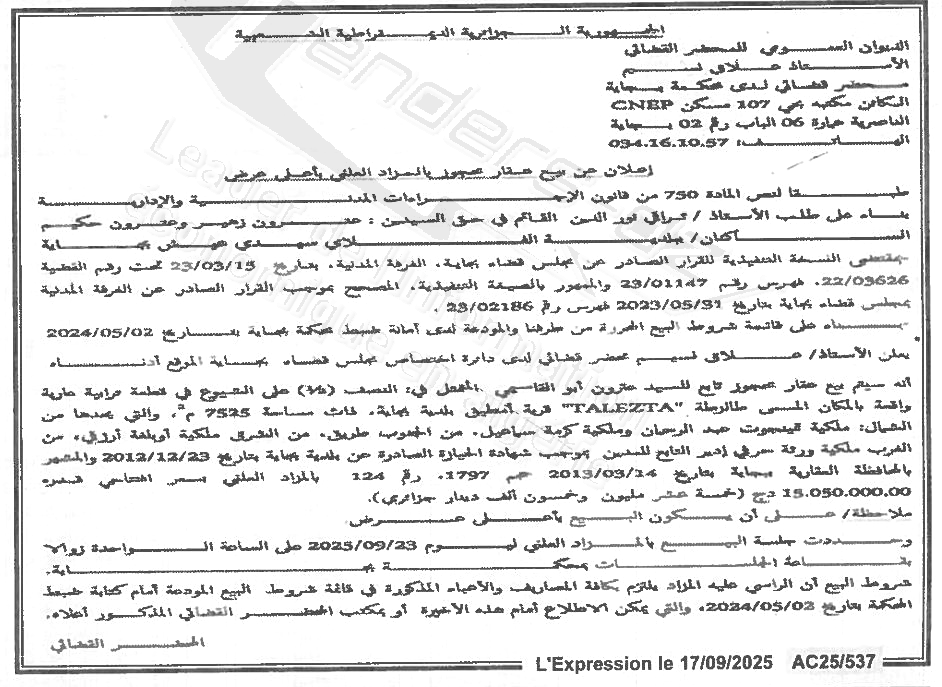 الجمهورية الجزائرية الديمقراطية الشعبية
الديوان العمومي للمحضر القضائي
الأستاذ علاق نسيم
محضر قضائي لدى محكمة بجاية
الكائن مكتبه بحي 107 مسكن CNEP
الناصرية عمارة 06 الباب رقم 02 بجاية
الهاتف: 034.16.10.57
إعلان عن بيع عقار محجوز بالمزاد العلني بأعلى عرض
طبقا لنص المادة 750 من قانون الإجراءات المدنية والإدارية
بناء على طلب الأستاذ / عراقي نور الدين القائم في حق السيدين : عترون زهير وعترون حكيم
الساكنان/ ببلدية القلاي سيدي عيش بجاية
بمقتضى النسخة التنفيذية للقرار الصادر عن مجلس قضاء بجاية، الغرفة المدنية، بتاريخ 23/03/15 تحت رقم القضية
22/03626، فهرس رقم 23/01147 والممهور بالصيغة التنفيذية، المصحح بموجب القرار الصادر عن الغرفة المدنية
بمجلس قضاء بجاية بتاريخ 2023/05/31 فهرس رقم 23/02186 .
بناء على قائمة شروط البيع المحررة من طرفنا والمودعة لدى أمانة ضبط محكمة بجاية بتاريخ 2024/05/02
يعلن الأستاذ/ علاق نسيم محضر قضائي لدى دائرة اختصاص مجلس قضاء بجاية الموقع أدناه
أنه سيتم بيع عقار محجوز تابع للسيد عترون أبو القاسمي المتمثل في: النصف (½) على الشيوع في قطعة ترابية عارية
واقعة بالمكان المسمى طالزطة "TALEZTA" قرية بلدية بجاية، ذات مساحة 7525 م²، والتي يحدها من
الشمال: ملكية عبد الرحمان وملكية كريمة، من الجنوب طريق، من الشرق ملكية، من
الغرب ملكية ورثة التابع للمدين بموجب شهادة الحيازة الصادرة عن بلدية بجاية بتاريخ 2012/12/23 والمشهر
بالمحافظة العقارية ببجاية بتاريخ 2013/03/14 حجم 1797، رقم 124 بالمزاد العلني بسعر افتتاحي قدره
15.050.000.00 دج (خمسة عشر مليون وخمسون ألف دينار جزائري).
ملاحظة/ على أن يكون البيع بأعلى عرض
وحددت جلسة البيع بالمزاد العلني ليوم 2025/09/23 على الساعة الواحدة زوالا
بقاعة الجلسات بمحكمة بجاية.
شروط البيع أن الراسي عليه المزاد يلتزم بكافة المصاريف والأعباء المذكورة في قائمة شروط البيع المودعة أمام كتابة ضبط
المحكمة بتاريخ 2024/05/02، والتي يمكن الاطلاع أمام هذه الأخيرة أو بمكتب المحضر القضائي المذكور أعلاه.
المحضر القضائي
L'Expression le 17/09/2025 AC25/537